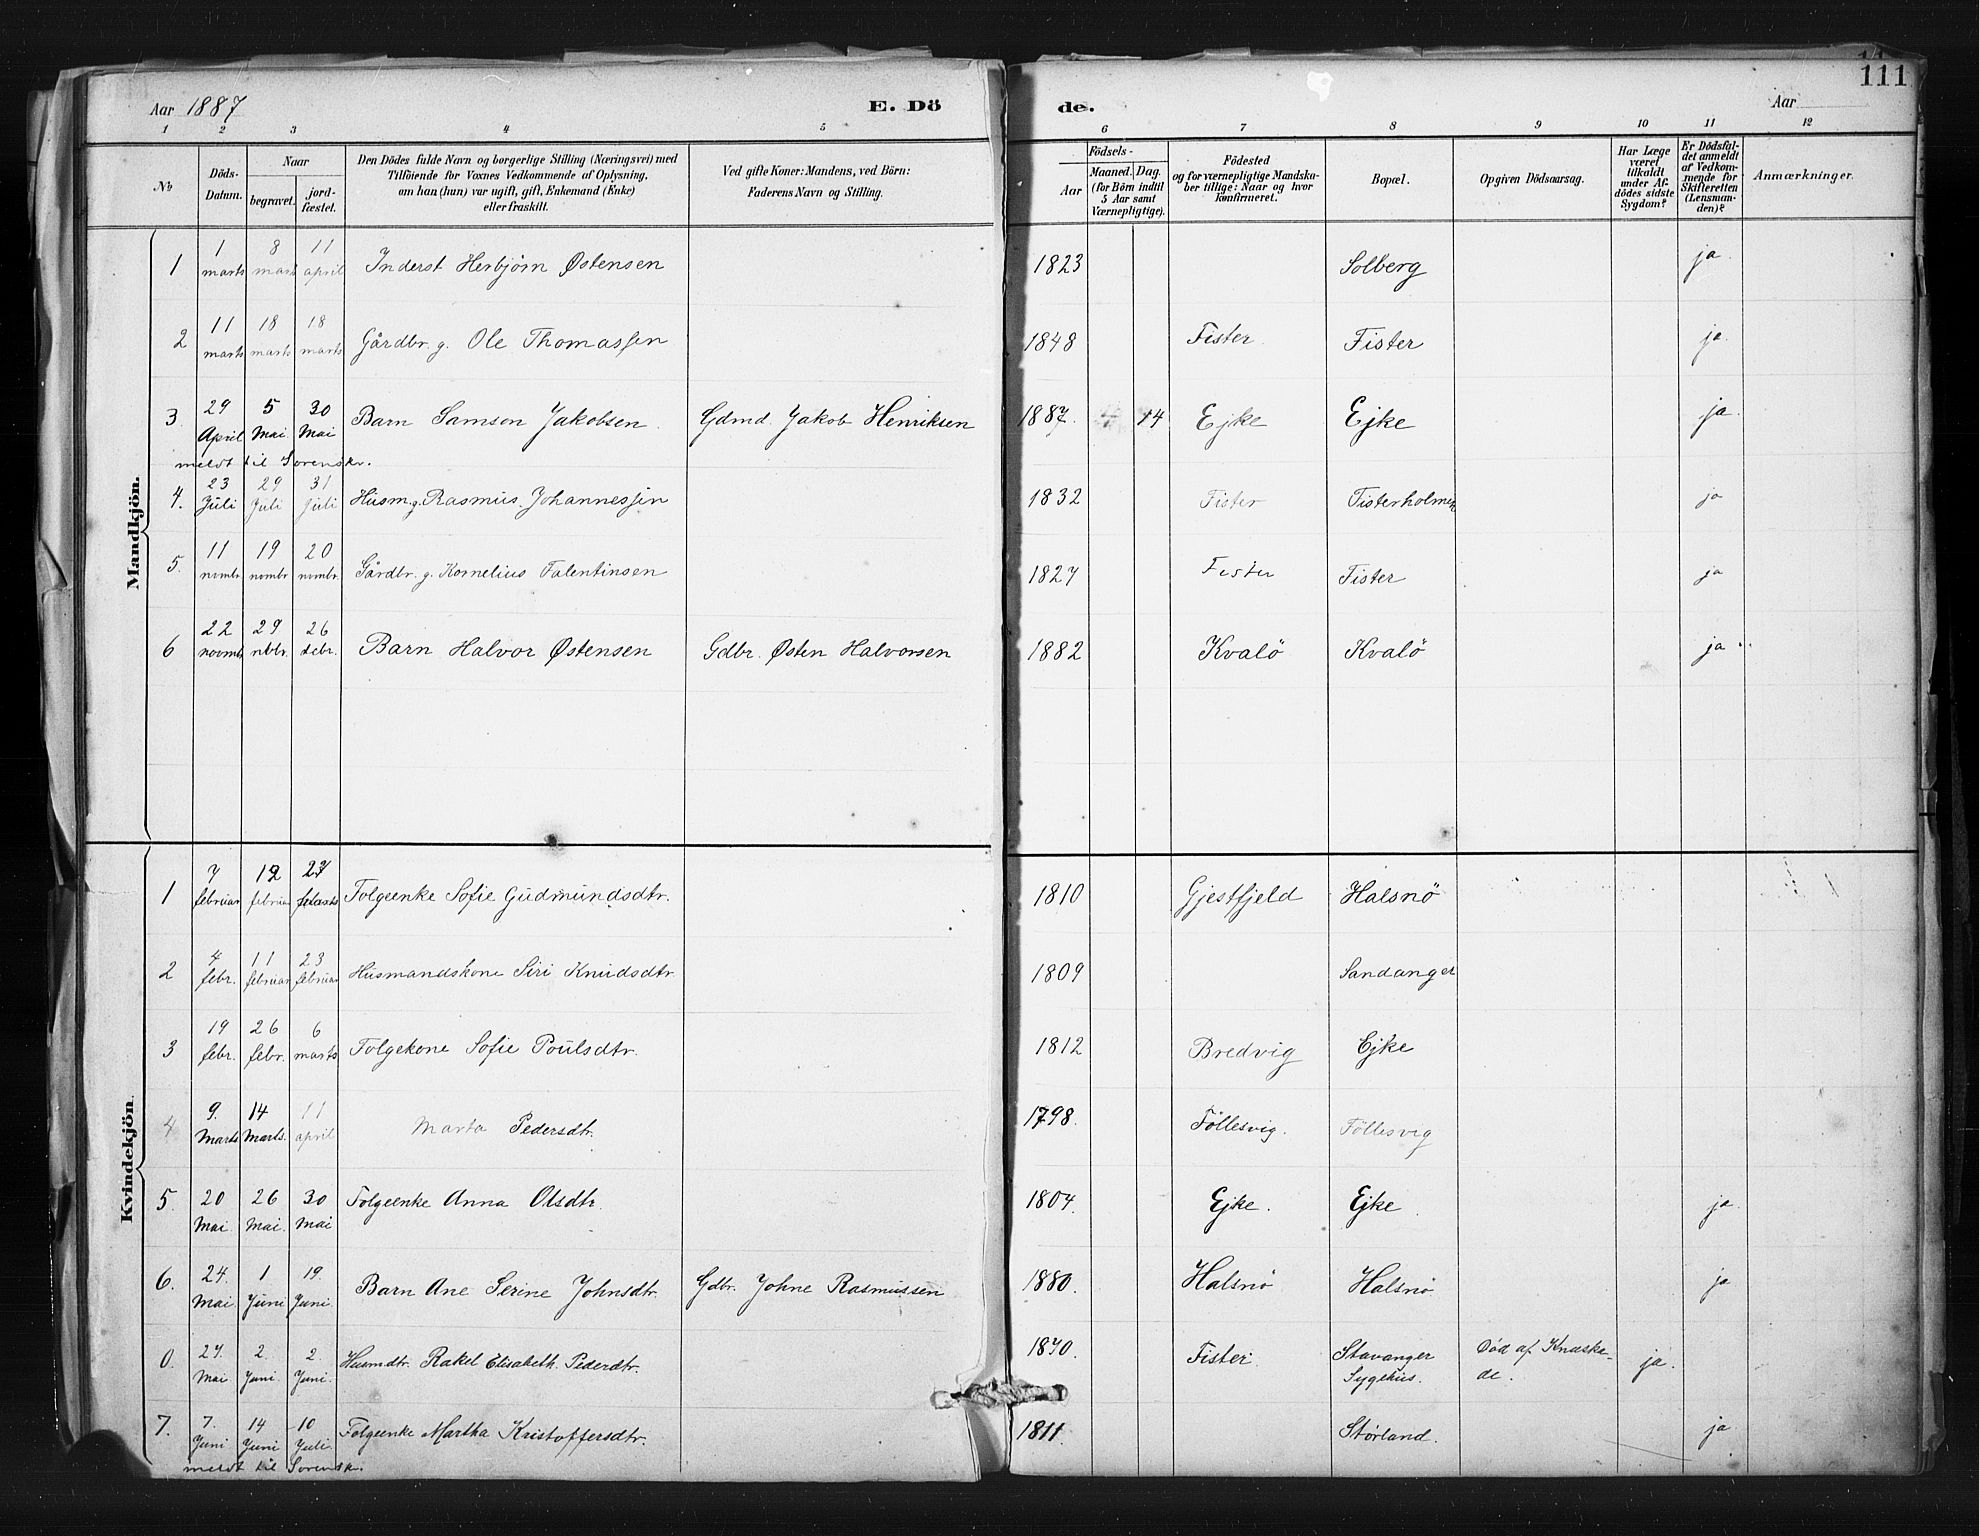 111
Aar 1887 E. Dö de. Aar
1 2 3 4 5 6 7 8 9 10 11 12
№ Döds-Datum. Naar begravet. jordfæstet. Den Dödes fulde Navn og borgerlige Stilling (Næringsvei) med Tilföiende for Voxnes Vedkommende af Oplysning, om han (hun) var ugift, gift, Enkemand (Enke) eller fraskilt. Ved gifte Koner: Mandens, ved Börn: Faderens Navn og Stilling. Födsels- Aar Maaned. Dag. (for Börn indtil 5 Aar samt Værnepligtige). Födested og for værnepligtige Mandskaber tillige: Naar og hvor konfirmeret. Bopæl. Opgiven Dödsaarsag. Har Læge været tilkaldt under Afdödes sidste Sygdom? Er Dödsfaldet anmeldt af Vedkommende for Skifteretten (Lensmanden)? Anmærkninger.
Mandkjön.
1 1 marts 8 marts 11 april Inderst Herbjörn Østensen 1823 Solberg ja.
2 11 marts 18 marts 18 marts Gårdbr. g. Ole Thomassen 1848 Fister Fister ja.
3. 29 April 5 Mai 30 Mai Barn Samson Jakobsen. Gdmd. Jakob Henriksen 1887. 14 Ejke Ejke ja.
meldt til Sorenskr.
4. 23 Juli 29 Juli 31 Juli Husm. g. Rasmus Johannessen 1832 Fister Fisterholmen ja
5. 11 nvmbr 19 nvmbr 20 nvmbr. Gårdbr. g. Kornelius Falentinsen 1827 Fister Fister ja
6 22 novmbr 29 26 debr. Barn Halvor Østensen Gdbr. Østen Halvorsen 1882 Kvalö Kvalö ja
Kvindekjön.
1 7 februar 12 februar 27 Folgeenke Sofie Gudmundsdtr. 1810 Gjestfjeld Halsnö
2 4 febr. 11 februar 23 februar Husmandskone Siri Knudsdtr. 1809 Sandanger
3 19 febr. 26 febr. 6 marts Folgekone Sofie Poulsdtr. 1812 Bredvig Ejke
4 9. Marts 14 Marts. 11 april Marta Pedersdtr. 1798. Föllesvig. Föllesvig
5. 20 Mai 26 Mai. 30 Mai Folgeenke Anna Olsdtr. 1804. Ejke. Ejke. ja.
6. 24. Mai 1 Juni 19. Juni. Barn Ane Serine Johnsdtr. Gdbr. Johne Rasmussen 1880. Halsnö Halsnö. ja
0. 27. Mai 2. Juni. 2. Juni. Husmdtr. Rakel Elisabeth Pederdtr. 1870. Fister Stavanger Sygehus. Död af Knæskade. ja.
7. 7. Juni 14 Juni 10 Juli. Folgeenke Martha Kristoffersdtr. 1811. Störland. ja
meldt til Sorenskr.